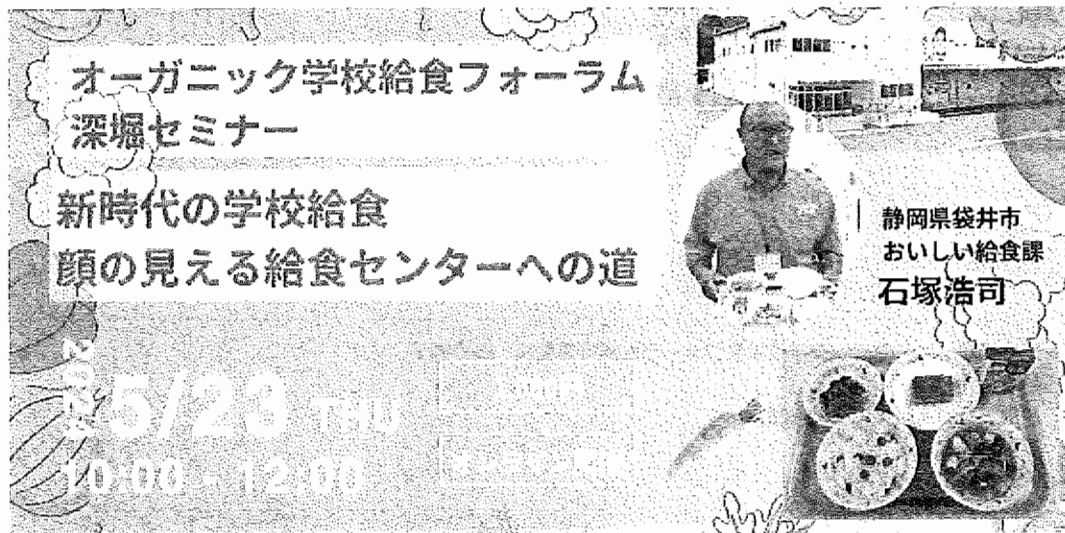 オーガニック学校給食フォーラム
深堀セミナー
新時代の学校給食
顔の見える給食センターへの道
静岡県袋井市
おいしい給食課
石塚浩司
2024
5/23 THU
10:00 - 12:00